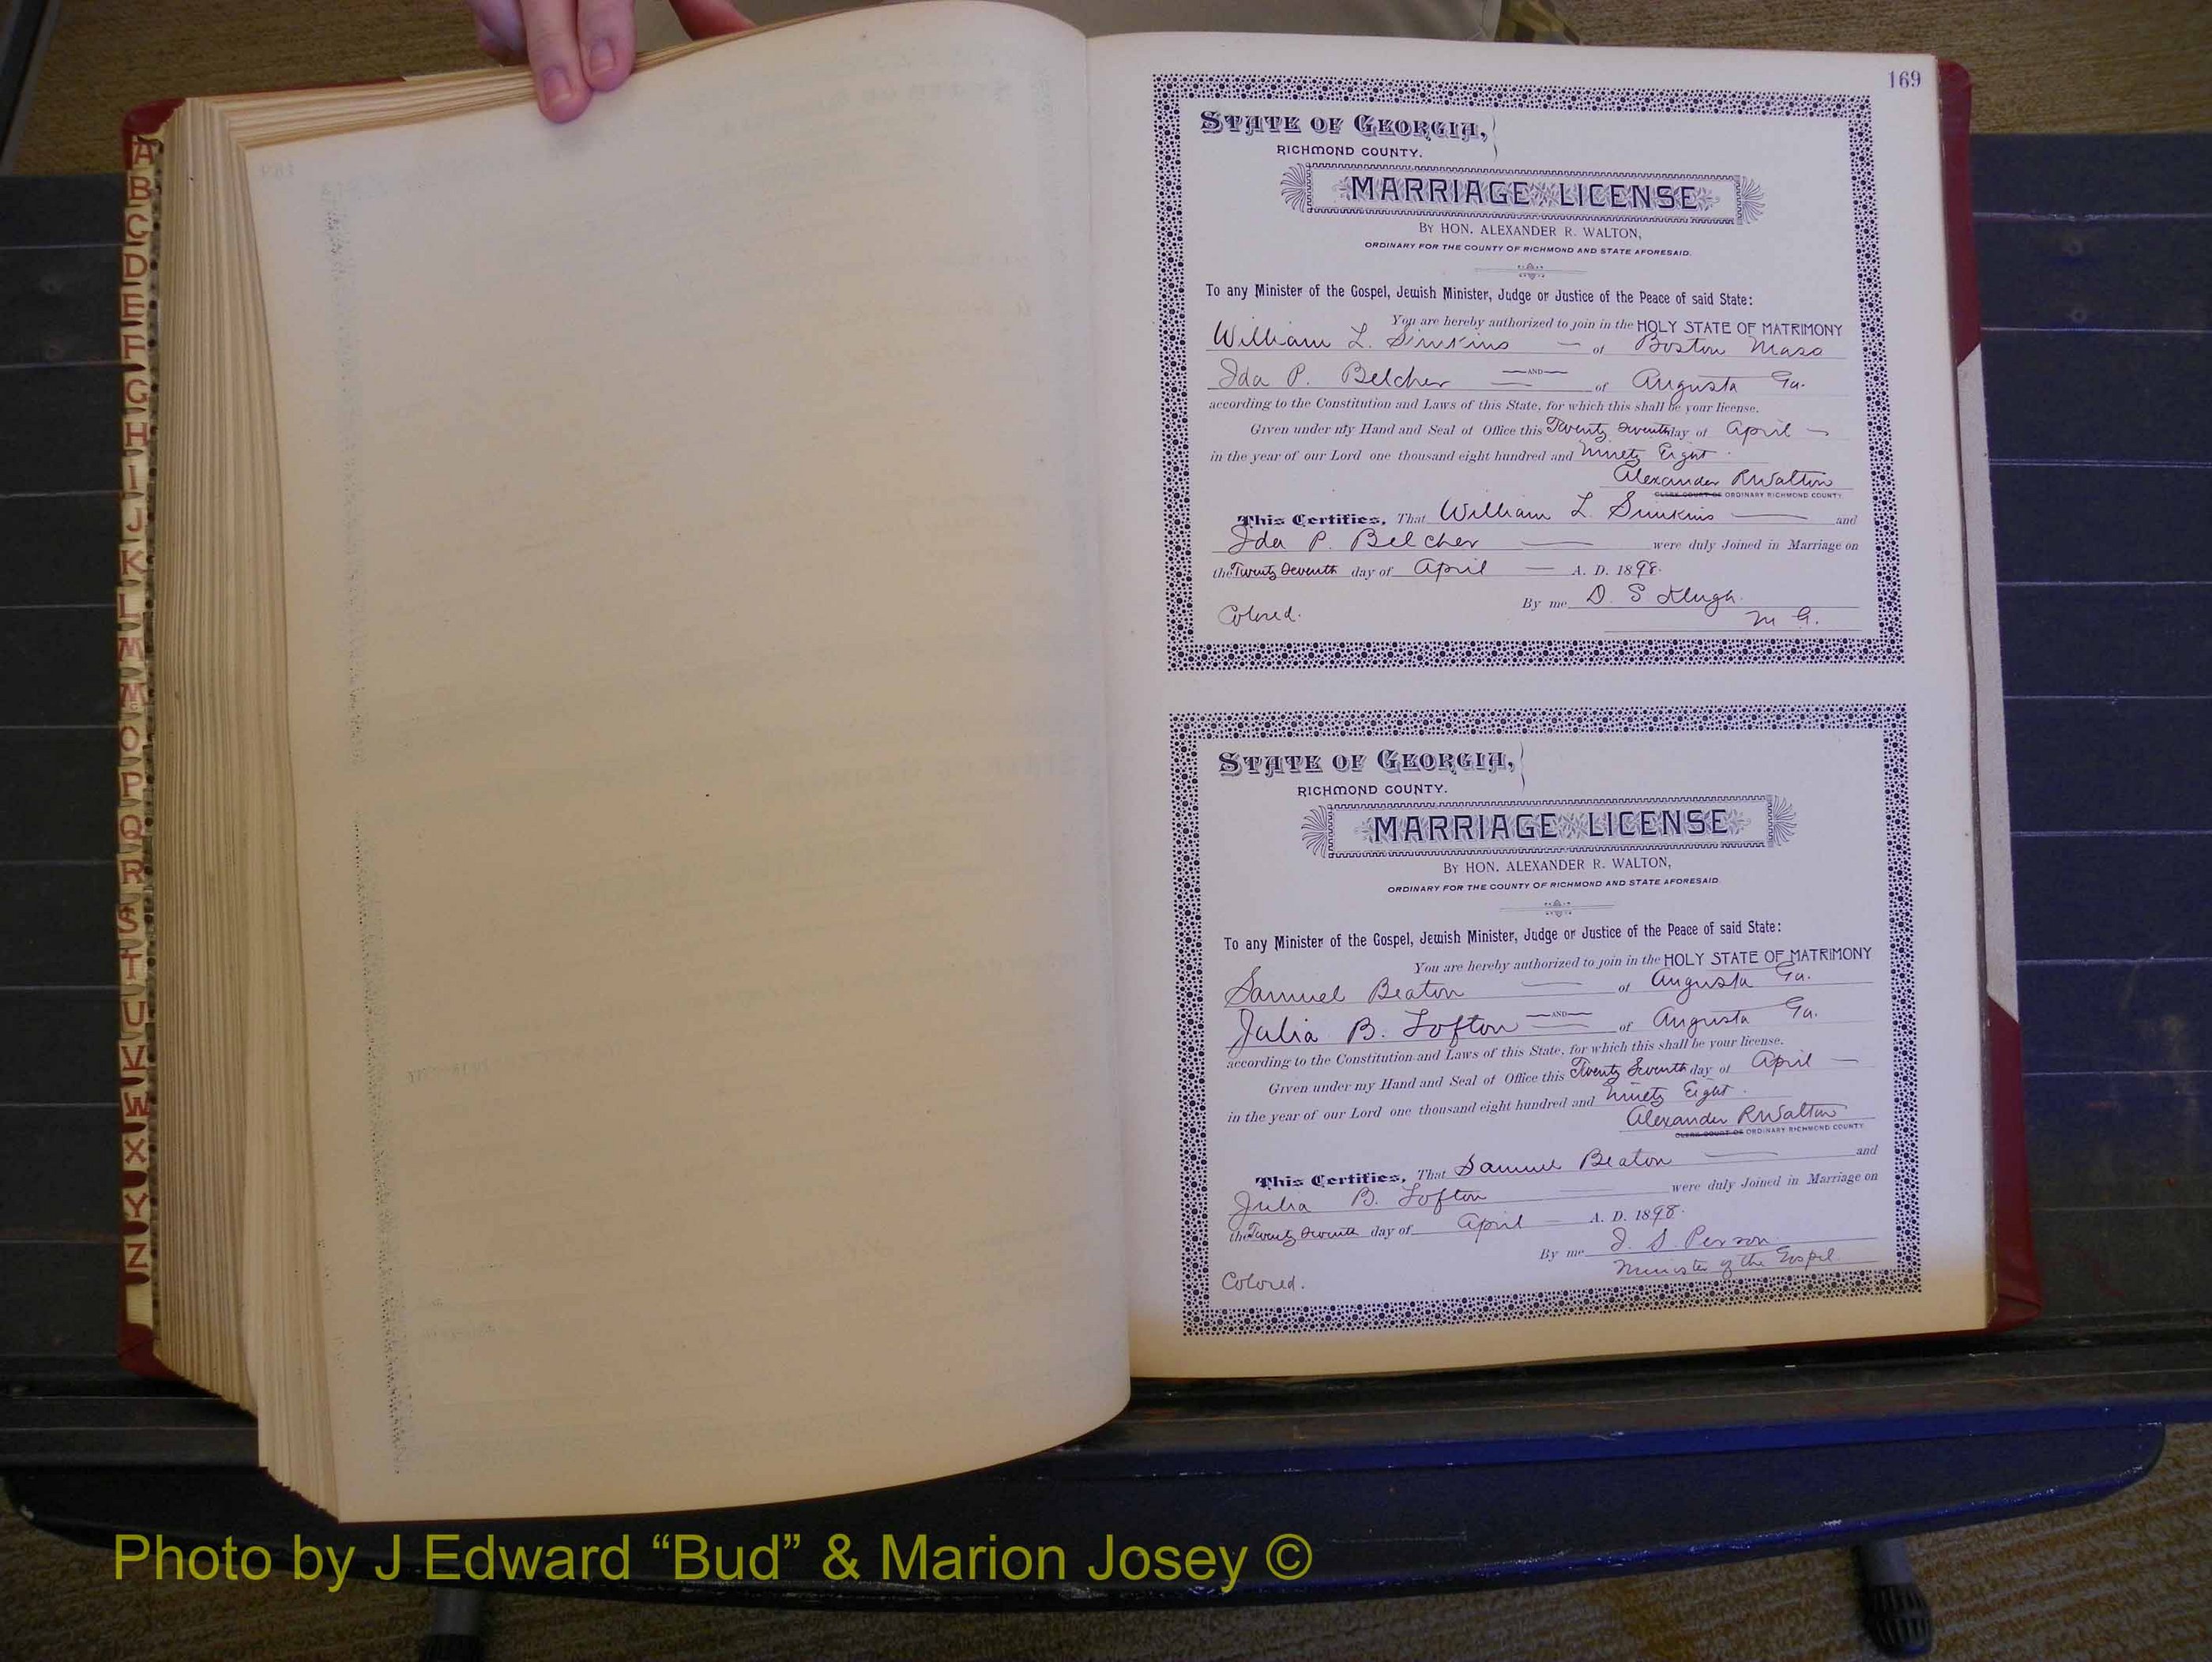 A
B
C
D
E
F
G
H
I
J
K
L
M
Mc
O
P
Q
R
S
T
U
V
W
X
Y
Z
169
STATE OF GEORGIA,
RICHMOND COUNTY.
MARRIAGE LICENSE
BY HON. ALEXANDER R. WALTON,
ORDINARY FOR THE COUNTY OF RICHMOND AND STATE AFORESAID.
To any Minister of the Gospel, Jewish Minister, Judge or Justice of the Peace of said State:
You are hereby authorized to join in the HOLY STATE OF MATRIMONY
William L. Simkins — of Boston Mass
—AND—
Ida P. Belcher of Augusta Ga.
according to the Constitution and Laws of this State, for which this shall be your license.
Given under my Hand and Seal of Office this Twenty Seventh day of April —
in the year of our Lord one thousand eight hundred and Ninety Eight.
Alexander R Walton
CLERK COURT OF ORDINARY RICHMOND COUNTY.
This Certifies, That William L Simkins — and
Ida P. Belcher — were duly Joined in Marriage on
the Twenty Seventh day of April — A. D. 1898.
By me D. S Klugh.
Colored. M G.
STATE OF GEORGIA,
RICHMOND COUNTY.
MARRIAGE LICENSE
BY HON. ALEXANDER R. WALTON,
ORDINARY FOR THE COUNTY OF RICHMOND AND STATE AFORESAID
To any Minister of the Gospel, Jewish Minister, Judge or Justice of the Peace of said State:
You are hereby authorized to join in the HOLY STATE OF MATRIMONY
Samuel Beaton — of Augusta Ga.
Julia B. Lofton —AND— of Augusta Ga.
according to the Constitution and Laws of this State, for which this shall be your license.
Given under my Hand and Seal of Office this Twenty Seventh day of April —
in the year of our Lord one thousand eight hundred and Ninety Eight.
Alexander R Walton
CLERK COURT OF ORDINARY RICHMOND COUNTY
This Certifies, That Samuel Beaton — and
Julia B. Lofton — were duly Joined in Marriage on
the Twenty Seventh day of April — A. D. 1898.
By me J. S. Person
Minister of the Gospel
Colored.
Photo by J Edward “Bud” & Marion Josey ©